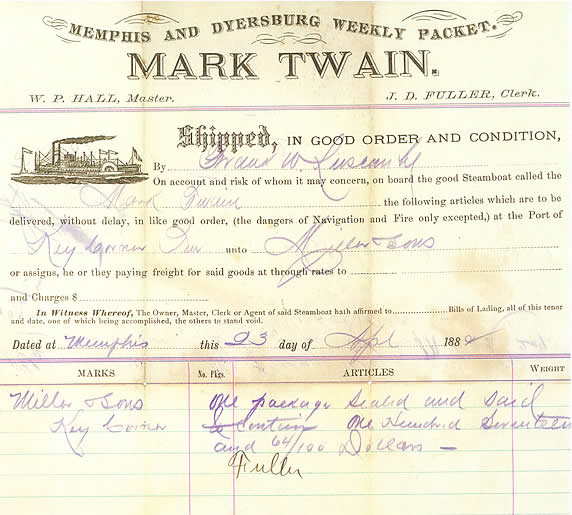 MEMPHIS AND DYERSBURG WEEKLY PACKET.
MARK TWAIN.
W. P. HALL, Master. J. D. FULLER, Clerk.
Shipped, IN GOOD ORDER AND CONDITION,
By W
On account and risk of whom it may concern, on board the good Steamboat called the
Mark Twain the following articles which are to be
delivered, without delay, in like good order, (the dangers of Navigation and Fire only excepted,) at the Port of
Key Corner unto Miller & Sons
or assigns, he or they paying freight for said goods at through rates to
and Charges $
In Witness Whereof, The Owner, Master, Clerk or Agent of said Steamboat hath affirmed to Bills of Lading, all of this tenor
and date, one of which being accomplished, the others to stand void.
Dated at Memphis this 23 day of Apl 188
MARKS No. Pkgs. ARTICLES WEIGHT
Miller & Sons One package Sealed and Said
Key Corner to Contain One Hundred Seventeen
and 64/100 Dollars —
Fuller